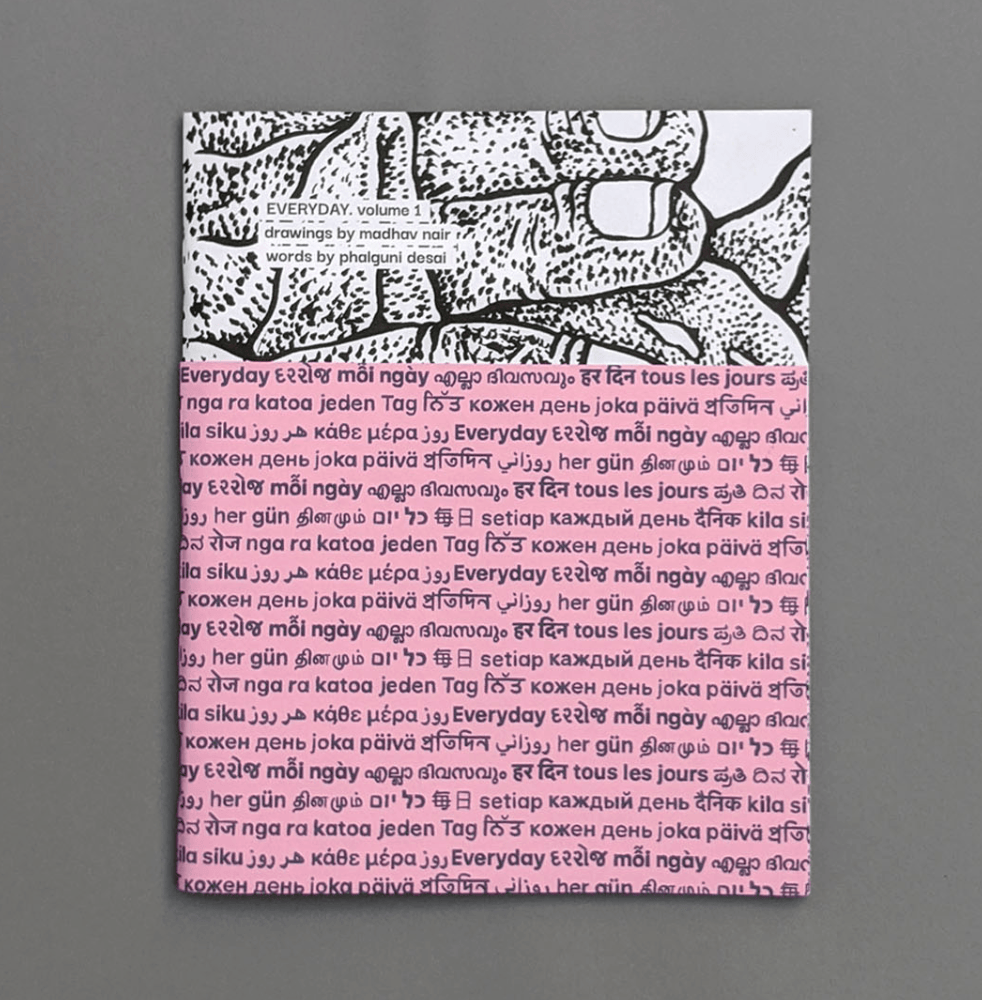 EVERYDAY. volume 1
drawings by madhav nair
words by phalguni desai
Everyday દરરોજ mỗi ngày എല്ലാ ദിവസവും हर दिन tous les jours ಪ್ರತಿ
nga ra katoa jeden Tag ਨਿੱਤ кожен день joka päivä প্রতিদিন روزاني
ila siku هر روز κάθε μέρα روز Everyday દરરોજ mỗi ngày എല്ലാ ദിവസ
кожен день joka päivä প্রতিদিন روزاني her gün தினமும் כל יום 毎
ay દરરોજ mỗi ngày എല്ലാ ദിവസവും हर दिन tous les jours ಪ್ರತಿ ದಿನ रो
روز her gün தினமும் כל יום 毎日 setiap каждый день दैनिक kila si
ದಿನ रोज nga ra katoa jeden Tag ਨਿੱਤ кожен день joka päivä প্রতি
ila siku هر روز κάθε μέρα روز Everyday દરરોજ mỗi ngày എല്ലാ ദിവസ
кожен день joka päivä প্রতিদিন روزاني her gün தினமும் כל יום 毎
ay દરરોજ mỗi ngày എല്ലാ ദിവസവും हर दिन tous les jours ಪ್ರತಿ ದಿನ रो
روز her gün தினமும் כל יום 毎日 setiap каждый день दैनिक kila si
ದಿನ रोज nga ra katoa jeden Tag ਨਿੱਤ кожен день joka päivä প্রতি
ila siku هر روز κάθε μέρα روز Everyday દરરોજ mỗi ngày എല്ലാ ദിവസ
кожен день joka päivä প্রতিদিন روزاني her gün தினமும் כל יום 毎
ay દરરોજ mỗi ngày എല്ലാ ദിവസവും हर दिन tous les jours ಪ್ರತಿ ದಿನ रो
روز her gün தினமும் כל יום 毎日 setiap каждый день दैनिक kila si
ದಿನ रोज nga ra katoa jeden Tag ਨਿੱਤ кожен день joka päivä প্রতি
ila siku هر روز κάθε μέρα روز Everyday દરરોજ mỗi ngày എല്ലാ ദിവസ
кожен день joka päivä প্রতিদিন روزاني her gün தினமும் כל יום 毎